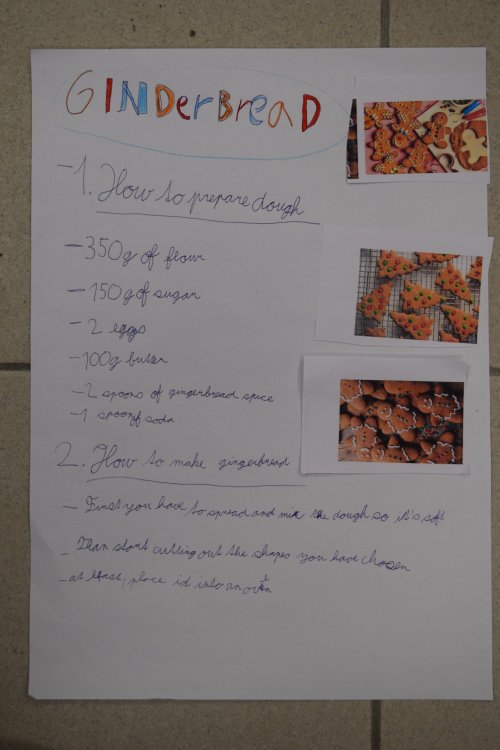 GINDerBreaD
-1. How to prepare dough
- 350g of flour
- 150g of sugar
- 2 eggs
- 100g butter
- 2 spoons of gingerbread spice
- 1 spoon of soda
2. How to make gingerbread
- First you have to spread and mix the dough so it's soft
- Than start cutting out the shapes you have chosen
- at least, place id into an oven